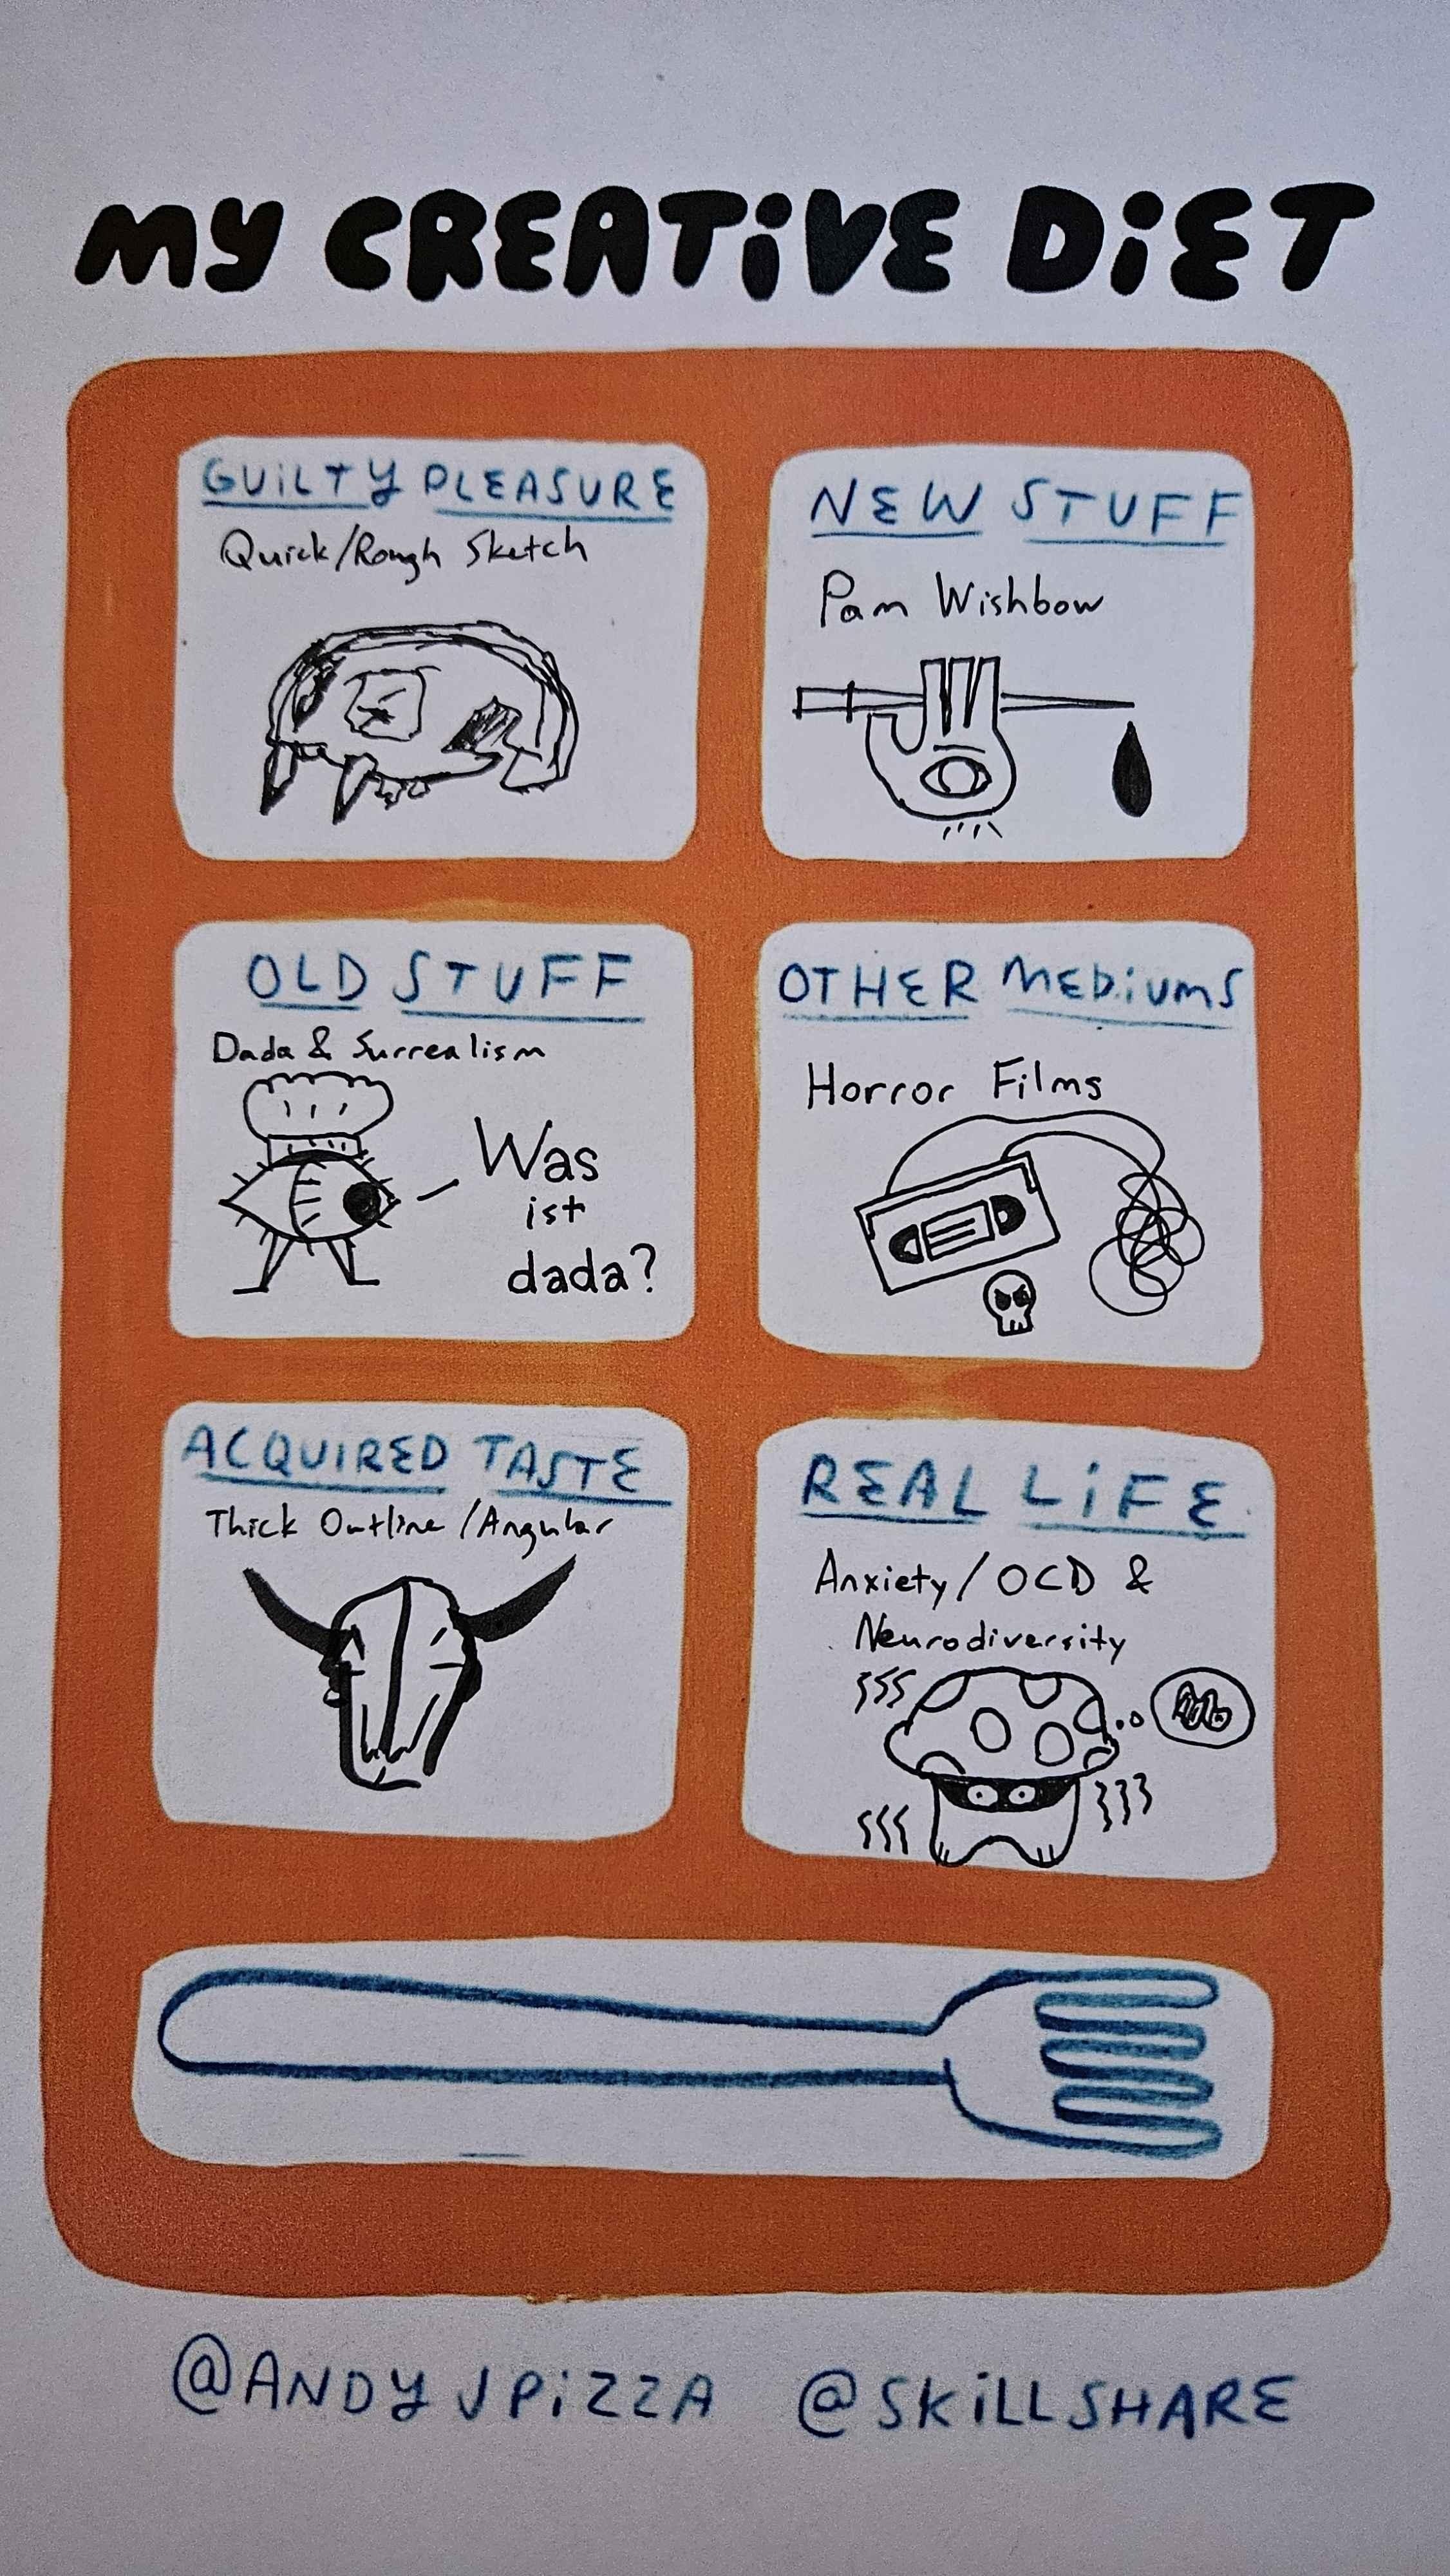 MY CREATIVE DIET
GUILTY PLEASURE
Quick/Rough Sketch
NEW STUFF
Pam Wishbow
OLD STUFF
Dada & Surrealism
Was
ist
dada?
OTHER MEDIUMS
Horror Films
ACQUIRED TASTE
Thick Outline/Angular
REAL LIFE
Anxiety/OCD &
Neurodiversity
@ANDYJPIZZA @SKILLSHARE